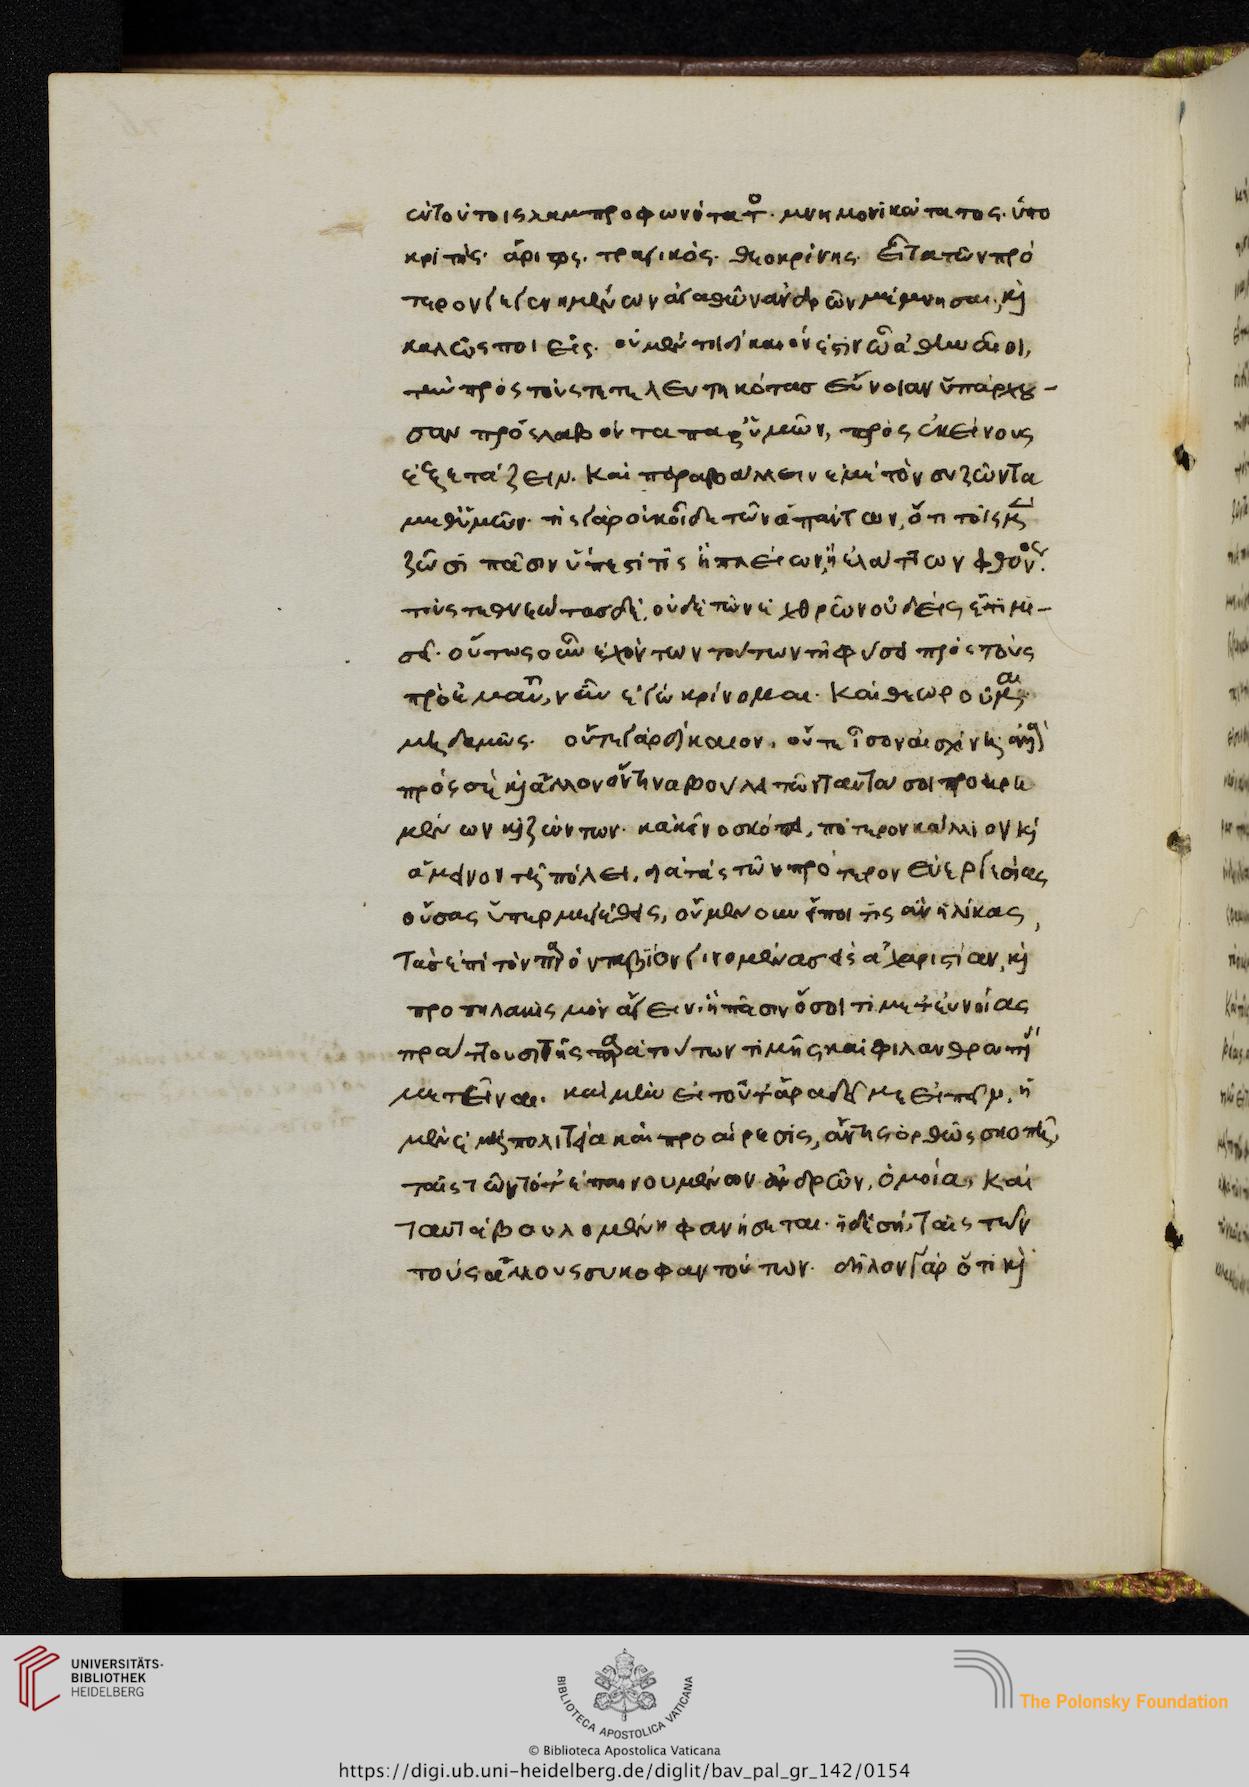 ἐν τούτοις λαμπροφωνότατος. μνημονικώτατος. ὑπο
κριτὴς. ἄριστος. τραγικὸς. θεοκρίνης. εἶτα τῶν πρό
τερον γεγενημένων ἀγαθῶν ἀνδρῶν μέμνησαι, καὶ
καλῶς ποιεῖς. οὐ μέντοι δίκαιόν ἐστιν ὦ ἀθηναῖοι,
τὴν πρὸς τοὺς τετελευτηκότας εὔνοιαν ὑπάρχου-
σαν προσλαβόντα παρ' ὑμῶν, πρὸς ἐκείνους
ἐξετάζειν. καὶ παραβάλλειν ἐμὲ τὸν συζῶντα
μεθ' ὑμῶν. τίς γὰρ οὐκ οἶδε τῶν ἁπάντων, ὅτι τοῖς μὲν
ζῶσι πᾶσιν ὕπεστί τις ἢ πλείων, ἢ ἐλάττων φθόνος.
τοὺς τεθνεῶτας δὲ, οὐδὲ τῶν ἐχθρῶν οὐδεὶς ἔτι μι-
σεῖ. οὕτως οὖν ἐχόντων τούτων τῇ φύσει πρὸς τοὺς
πρὸ ἐμαυτοῦ, νῦν ἐγὼ κρίνομαι. καὶ θεωροῦμαι
μηδαμῶς. οὔτε γὰρ δίκαιον. οὔτε ἴσον αἰσχίνη ἀλλὰ
πρός σε καὶ ἄλλον ὅντινα βούλει τῶν ταυτά σοι προῃρη
μένων καὶ ζώντων. κἀκεῖνο σκόπει, πότερον κάλλιον καὶ
ἄμεινον τῇ πόλει, διὰ τὰς τῶν πρότερον εὐεργεσίας
οὔσας ὑπερμεγέθεις, οὐ μὲν οὖν εἴποι τις ἂν ἡλίκας,
τὰς ἐπὶ τὸν παρόντα βίον γινομένας εἰς ἀχαριστίαν, καὶ
προπηλακισμὸν ἄγειν. ἢ πᾶσιν ὅσοι τι μετ' εὐνοίας
πράττουσι τῆς παρὰ τούτων τιμῆς καὶ φιλανθρωπίας
μετεῖναι. καὶ μὴν εἰ τοῦτ' ἄρα δεῖ με εἰπεῖν, ἡ
μὲν ἐμὴ πολιτεία καὶ προαίρεσις, ἄν τις ὀρθῶς σκοπῇ,
ταῖς τῶν τότ' ἐπαινουμένων ἀνδρῶν, ὁμοία, καὶ
ταυτὰ βουλομένη φανήσεται. ἡ δὲ σὴ, ταῖς τῶν
τοὺς ἄλλους συκοφαντούντων. δῆλον γὰρ ὅτι καὶ
UNIVERSITÄTS-
BIBLIOTHEK
HEIDELBERG
BIBLIOTECA APOSTOLICA VATICANA
The Polonsky Foundation
© Biblioteca Apostolica Vaticana
https://digi.ub.uni-heidelberg.de/diglit/bav_pal_gr_142/0154